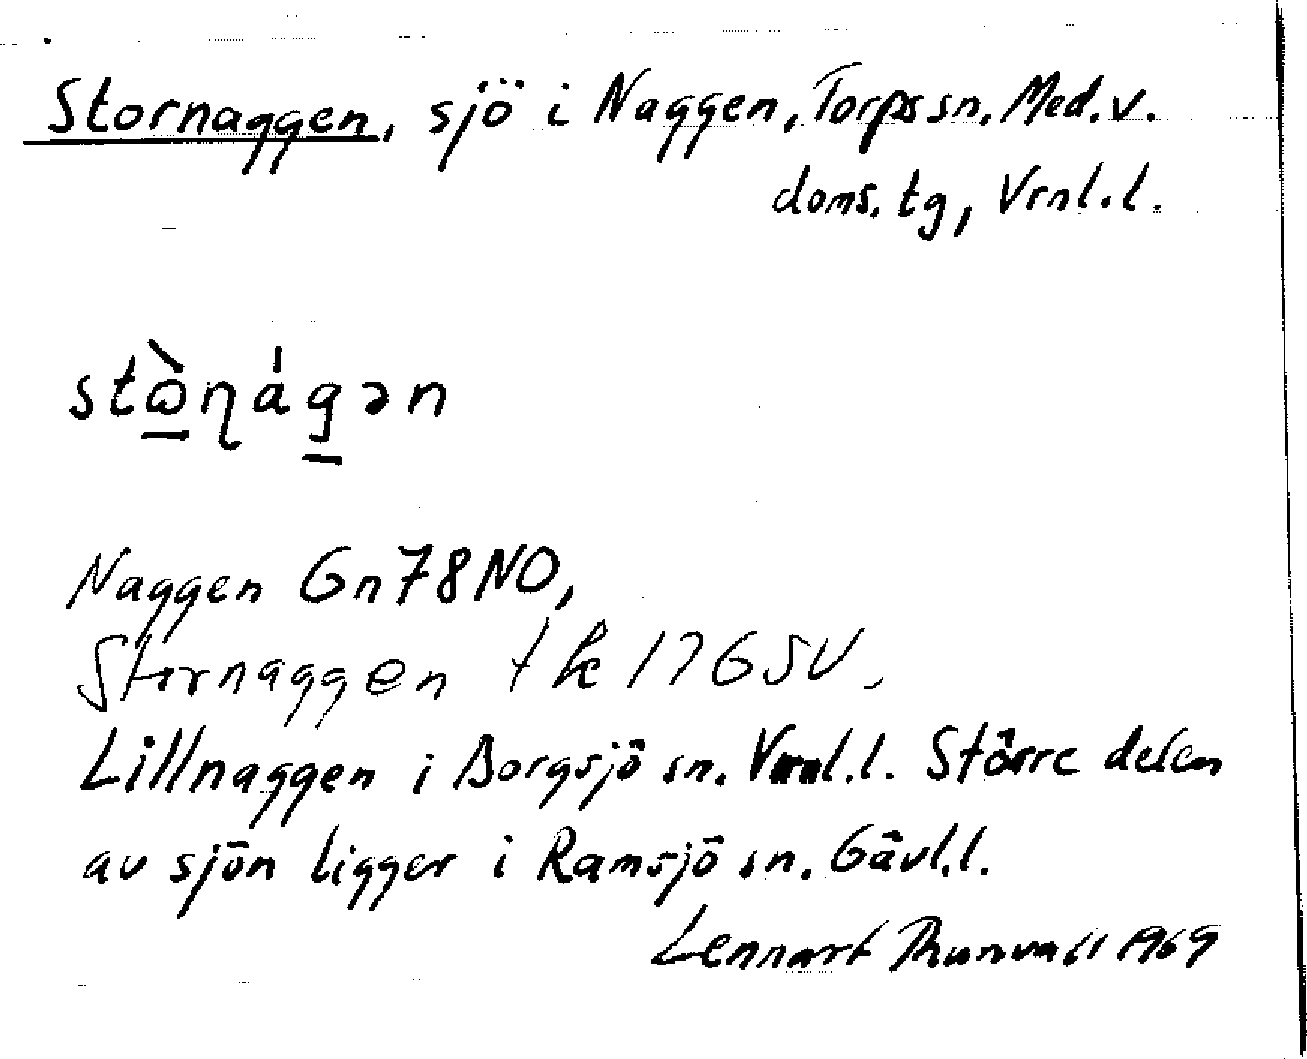 Stornaggen, sjö i Naggen, Torps sn. Med. v.
doms. tg, Vrnl. l.
stɷ̲̀ɳág̲ən
Naggen Gn78NO,
Stornaggen tk 17G SV.
Lillnaggen i Borgsjö sn. Vrnl. l. Större delen
av sjön ligger i Ramsjö sn. Gävl. l.
Lennart Thunvall 1969